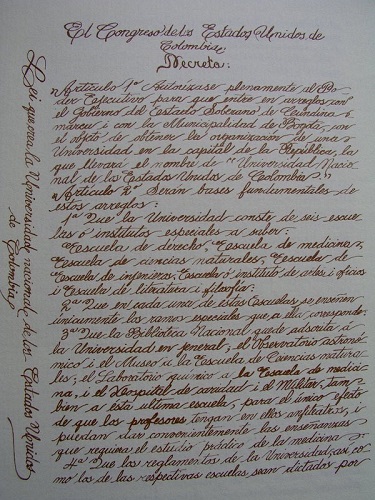 El Congreso de los Estados Unidos de
Colombia,
Decreta:
"Artículo 1º Autorízase plenamente al Po-
der Ejecutivo para que entre en arreglos con
el Gobierno del Estado Soberano de Cundina-
marca i con la Municipalidad de Bogotá, con
el objeto de obtener la organización de una
Universidad en la capital de la República, la
que llevará el nombre de "Universidad Nacio-
nal de los Estados Unidos de Colombia."
"Artículo 2º Serán bases fundamentales de
estos arreglos:
1ª Que la Universidad conste de seis escue-
las ó institutos especiales a saber:
Escuela de derecho, Escuela de medicina,
Escuela de ciencias naturales, Escuela de
Escuela de injenieros, Escuela ó instituto de artes i oficios
i Escuela de literatura i filosofía:
2ª Que en cada una de estas Escuelas se enseñen
únicamente los ramos especiales que a ella corresponde:
3ª Que la Biblioteca Nacional quede adscrita a
la Universidad en jeneral; el Observatorio astronó-
mico i el Museo a la Escuela de Ciencias natura-
les; el Laboratorio químico a la Escuela de medici-
na, i el Hospital de caridad i el Militar, tam-
bien a esta última escuela, para el único efecto
de que los profesores tengan en ellos anfiteatros, i
puedan dar convenientemente las enseñanzas
que requiera el estudio práctico de la medicina
4ª Que los reglamentos de la Universidad, así co-
mo los de las respectivas escuelas, sean dictados por
Lei que crea la Universidad nacional de los Estados Unidos
de Colombia